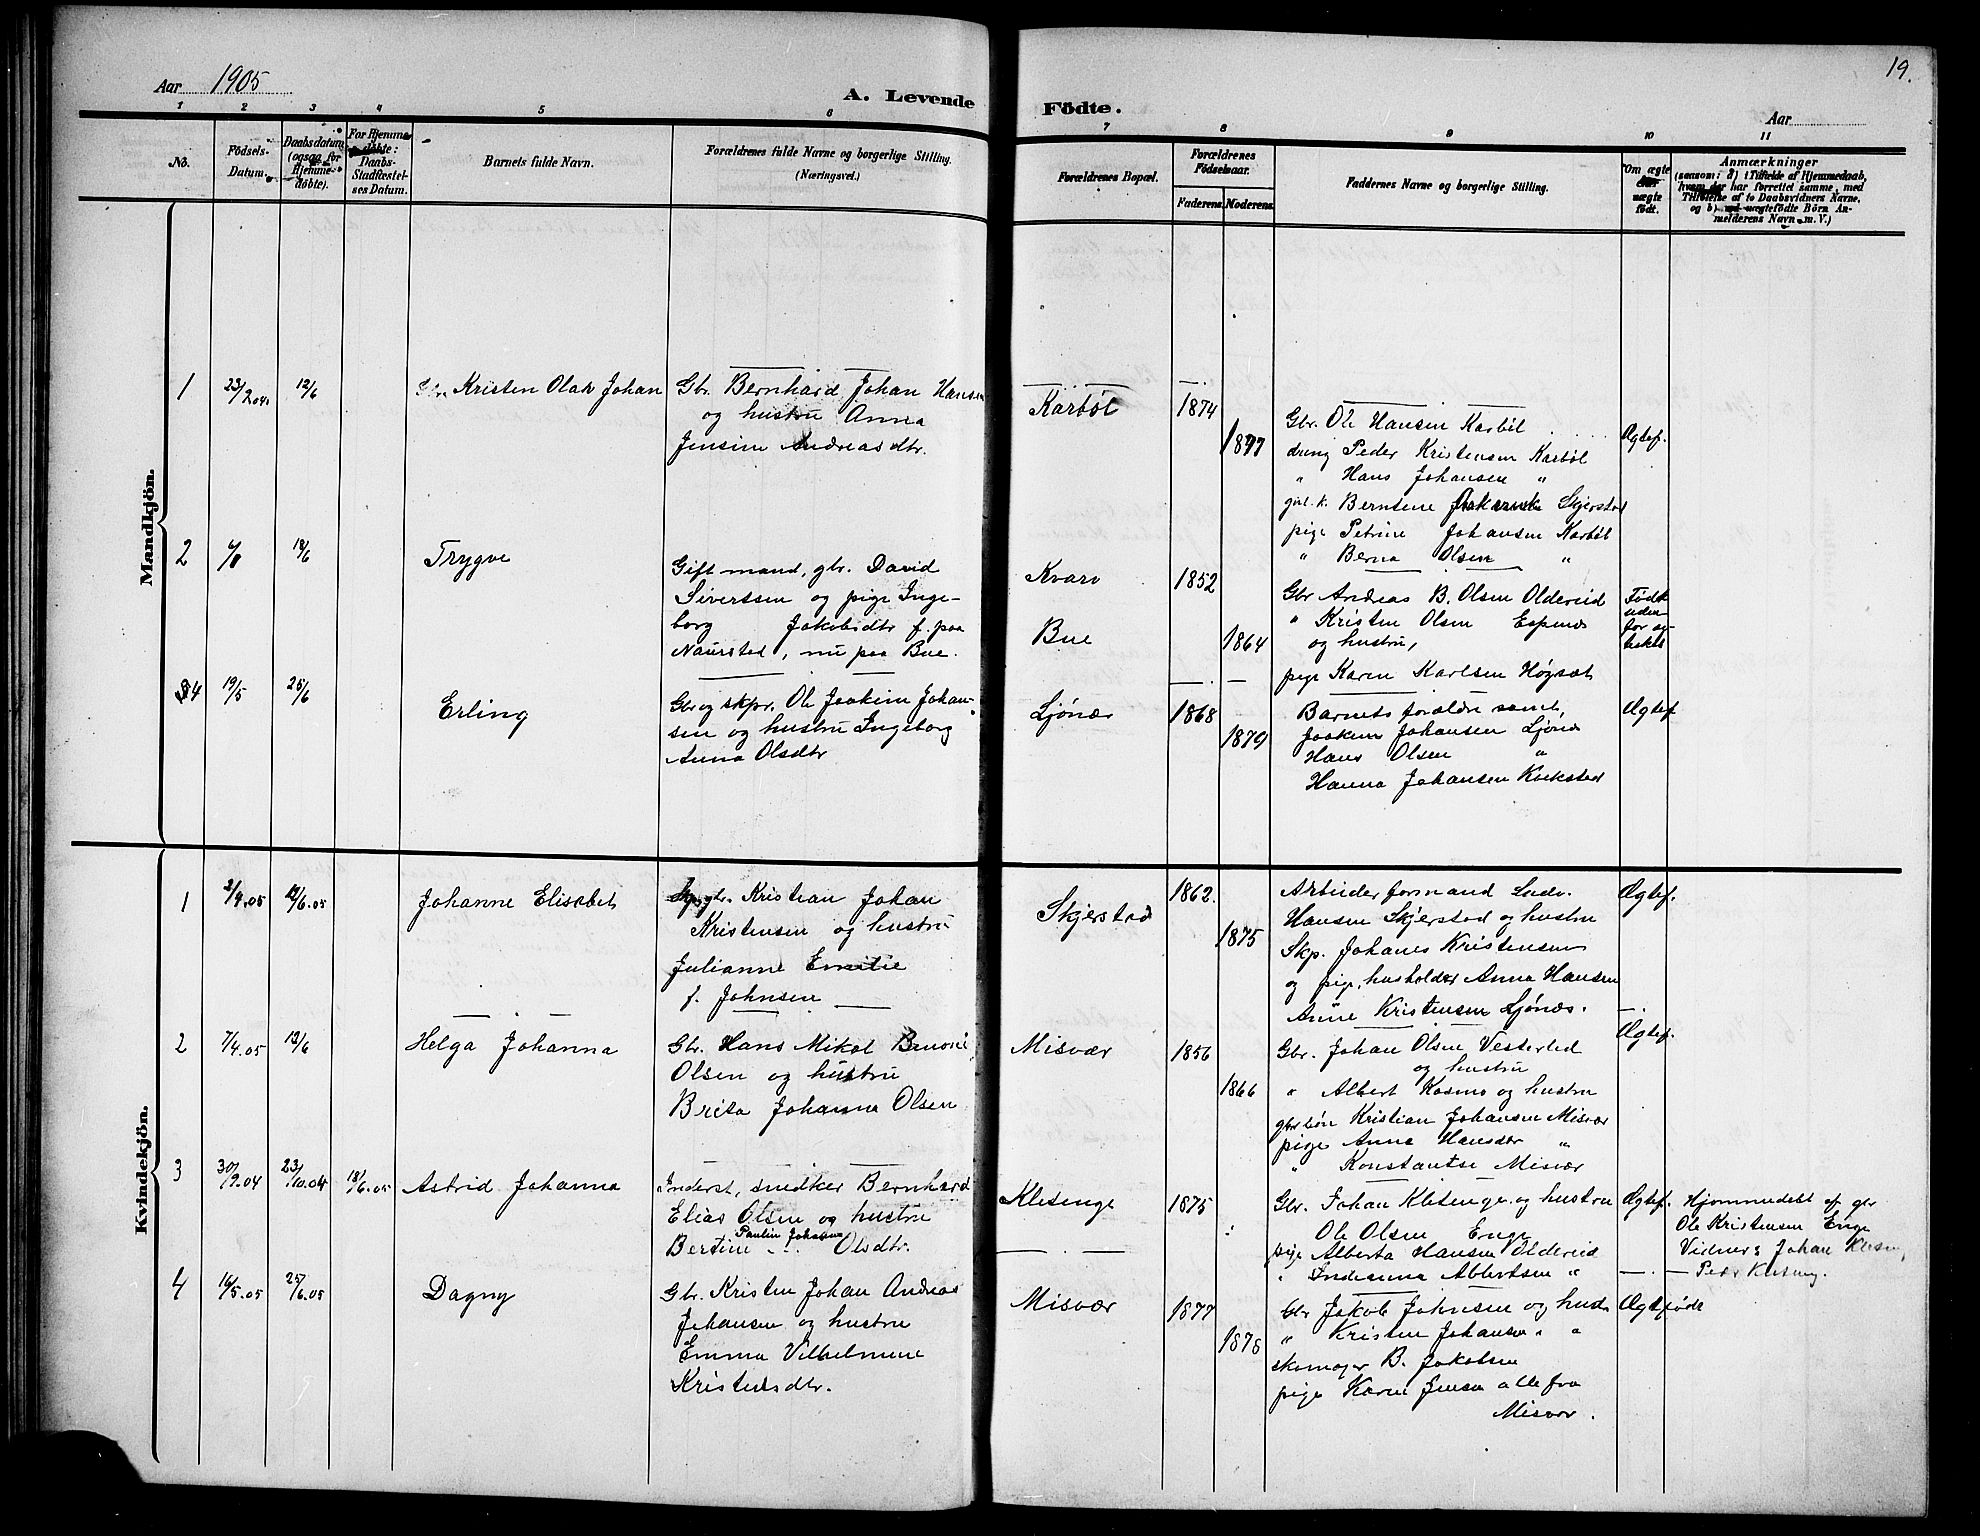 19.
Aar 1905
A. Levende Födte.
Aar
1 2 3 4 5 6 7 8 9 10 11
No.
Födsels-Datum.
Daabsdatum (ogsaa for Hjemme-døbte).
For Hjemme døbte: Daabs-Stadfæstel-ses Datum.
Barnets fulde Navn.
Forældrenes fulde Navne og borgerlige Stilling.
(Næringsvei.)
Forældrenes Bopæl.
Forældrenes Födselsaar.
Faderens. Moderens.
Faddernes Navne og borgerlige Stilling.
Om ægte eller uægte födt.
Anmærkninger
(saasom: a) i Tilfælde af Hjemmedaab,
hvem der har forrettet samme, med
Tilföielse af to Daabsvidners Navne,
og b) ved uægtefödte Börn An-
melderens Navn m. V.)
Mandkjön.
1 23/2 04. 12/6 Kristen Olav Johan
Gbr. Bernhard Johan Hansen
og hustru Anna
Jensine Andreasdtr.
Karbøl 1874
1877
Gbr. Ole Hansen Karbøl
dreng Peder Kristensen Karbøl
" Hans Johansen "
Berntene Skjerstad
pige Petrine Johansen Karbøl
" Berna Olsen "
Ægtef.
2 Trygve
Gift mand, gbr. David
Sivertsen og pige Inge-
borg Jakobsdtr f. paa
Naurstad, nu paa Bue.
Kvarv 1852
Bue 1864
Gbr Andreas B. Olsen Oldereid
" Kristen Olsen Espenes
og hustru,
pige Karen Karlsen Høgset
Født
uden-
for æg-
teskab
4 19/5 25/6 Erling
Gbr og skpr. Ole Joakim Johan-
sen og hustru Ingeborg
Anna Olsdtr
Ljønæs 1868
1879
Barnets forældre samt,
Joakim Johansen Ljønes
Hans Olsen "
Hanna Johansen
Ægtef
Kvindekjön.
1 2/4.05 12/6.05 Johanne Elisabet
Kristian Johan
Kristensen og hustru
Julianne Emelie
f. Johnsen
Skjerstad 1862.
1875
Arbeider formand Ludv.
Hansen Skjerstad og hustru
Skp. Johanes Kristensen
og pige, husholder Anna Hansen
Anne Kristensen Ljønæs.
Ægtef.
2 7/4.05 12/6 Helga Johanna
Gbr. Hans Mikal
Olsen og hustru
Brita Johanna Olsen
Misvær 1856
1866
Gbr. Johan Olsen Vesterlid
og hustru
" Albert Kosmo og hustru
Kristian Johansen Misvær
pige Anna Hansdtr "
" Konstantse Misvær
Ægtef.
3 30/9.04 23/10.04 18/6.05 Astrid Johanna
Inderst, snidker Bernhard
Elias Olsen og hustru
Paulin Johanna
Bertine Olsdtr.
Kletenge 1875
Gbr. Johan Kletenge og hustru
Ole Olsen Enge
pige Alberta Hansen Oldereid
" Albertsen "
Ægtef.
Hjemmedøbt af gbr
Ole Kristensen Enge
Vidner: Johan
4 16/5.05 25/6.05 Dagny
Gbr. Kristen Johan Andreas
Johansen og hustru
Emma Vilhelmine
Kristensdtr.
Misvær 1877
1878
Gbr Jakob Johnsen og hustr
" Kristen Johansen "
skomager B. Jakobsen
pige Karen Jensen alle fra
Misvær.
Ægtefødt